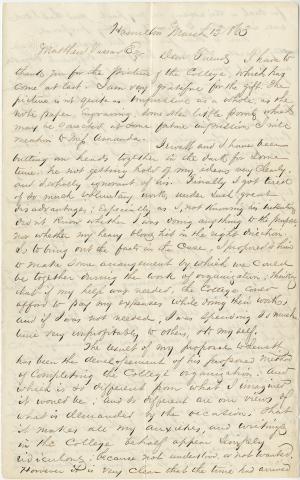 Hamilton March 13 1863
Matthew Vassar Esq.
Dear Friend, I have to
thank you for the picture of the College, which has
come at last. I am very grateful for the gift. The
picture is not quite as impressive as a whole, as the
note paper engraving; some other little points which
may be corrected at some future impression I will
mention to Miss Amanda.
Jewett and I have been
butting our heads together in the dark for some
time: he not getting hold of my ideas very clearly,
and I wholly ignorant of his. Finally I got tired
of so much voluntary work, under such great
disadvantage; especially as I, not knowing his intention,
did not know whether I was doing anything to the purpose
nor whether my heavy blows hit in the right direction.
So to bring out the facts in the case, I proposed to him
to make some arrangement by which we could
be together during the work of organization; thinking
that if my help was needed, the College could
afford to pay my expenses while doing their work,
and if I was not needed, I was spending so much
time very unprofitably to others, & to myself.
The result of my proposal to Jewett
has been the development of his proposed method
of completing the College organization: and
which is so different from what I imagined
it would be; and so different are our views of
what is demanded by the occasion, that
it makes all my anxieties, and writings
in the College behalf appear simply
ridiculous; because not understood, or not wanted.
However it is very clear that the time had arrived